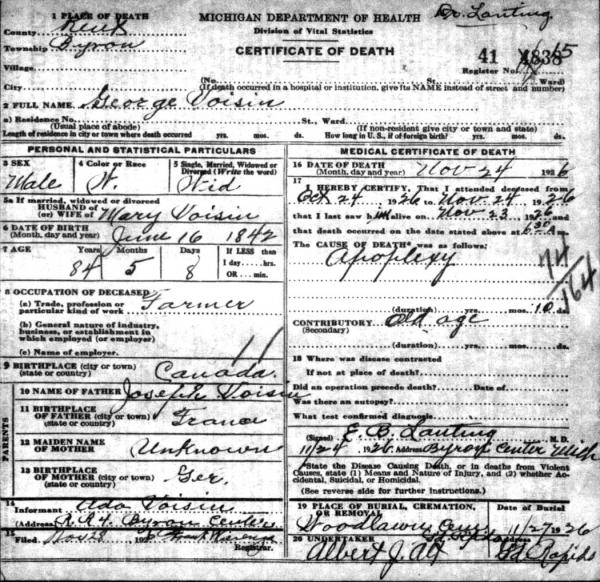 1 PLACE OF DEATH
County Kent
Township Byron
Village
City
MICHIGAN DEPARTMENT OF HEALTH
Division of Vital Statistics
CERTIFICATE OF DEATH
Dr. Lanting
41
Register No.
(No. St., Ward)
(If death occurred in a hospital or institution, give its NAME instead of street and number)
2 FULL NAME George Voisin
a) Residence No. St., Ward.
(Usual place of abode) (If non-resident give city or town and state)
Length of residence in city or town where death occurred yrs. mos. ds. How long in U. S., if of foreign birth? yrs. mos. ds.
PERSONAL AND STATISTICAL PARTICULARS
3 SEX Male
4 Color or Race W.
5 Single, Married, Widowed or Divorced (Write the word) Wid
5a If married, widowed or divorced
HUSBAND of
(or) WIFE of Mary Voisin
6 DATE OF BIRTH
(Month, day and year) June 16 1842
7 AGE Years Months Days If LESS than
84 5 8 1 day.....hrs.
OR.....min.
8 OCCUPATION OF DECEASED
(a) Trade, profession or
particular kind of work Farmer
(b) General nature of industry,
business, or establishment in
which employed (or employer)
(c) Name of employer.
11
9 BIRTHPLACE (city or town)
(state or country) Canada
PARENTS
10 NAME OF FATHER Joseph Voisin
11 BIRTHPLACE
OF FATHER (city or town)
(state or country) France
12 MAIDEN NAME
OF MOTHER Unknown
13 BIRTHPLACE
OF MOTHER (city or town)
(state or country) Ger.
14
Informant Ada Voisin
(Address R.R.4. Byron Center
15
Filed Nov 28
Registrar.
MEDICAL CERTIFICATE OF DEATH
16 DATE OF DEATH
(Month, day and year) Nov-24 1926
17
I HEREBY CERTIFY, That I attended deceased from
Oct 24 1926 to Nov-24 1926
that I last saw him alive on Nov-23 1926 and
that death occurred on the date stated above at m.
The CAUSE OF DEATH* was as follows:
Apoplexy
74
164
(duration) yrs. mos. 10 ds.
CONTRIBUTORY Old age
(Secondary)
(duration) yrs. mos. ds.
18 Where was disease contracted
If not at place of death?
Did an operation precede death? Date of
Was there an autopsy?
What test confirmed diagnosis
(Signed) E. B. Lanting M. D.
11/24 1926 Address Byron Center Mich
*State the Disease Causing Death, or in deaths from Violent
Causes, state (1) Means and Nature of Injury, and (2) whether Accidental, Suicidal, or Homicidal.
(See reverse side for further instructions.)
19 PLACE OF BURIAL, CREMATION, OR REMOVAL Date of Burial
Woodlawn Cem. 11/27 1926
20 UNDERTAKER
Albert J. Alt Gd Rapids